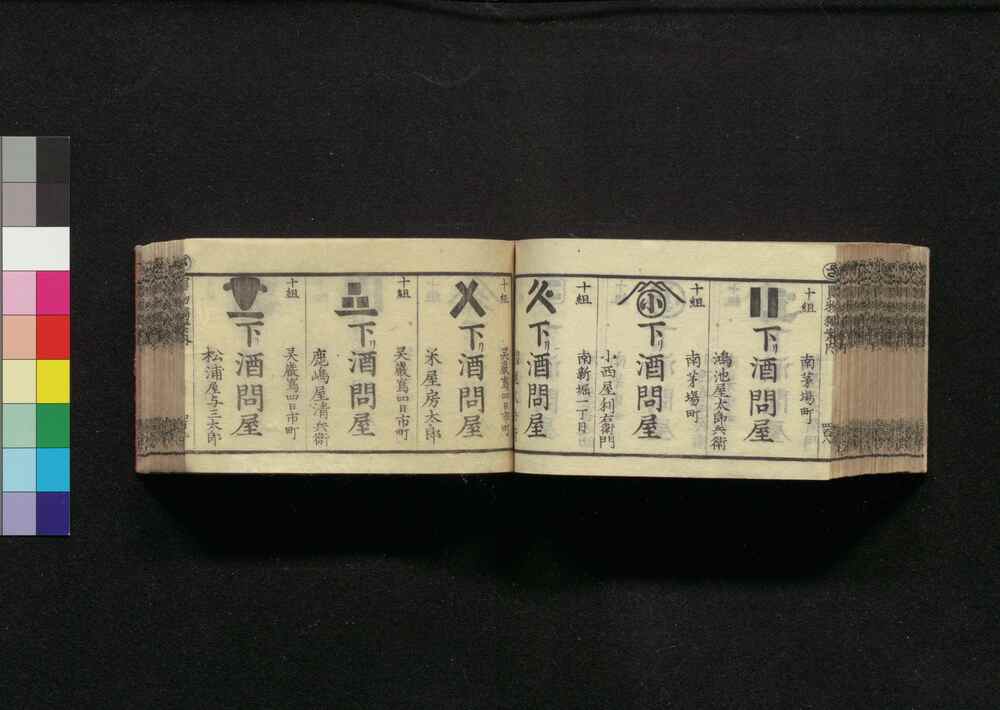 十組
南茅場町
下リ酒問屋
鴻池屋太郎兵衛
十組
南茅場町
小
下リ酒問屋
小西屋利右衛門
十組
南新堀一丁目
下リ酒問屋
十組
呉嵓嶌四日市町
下リ酒問屋
米屋房太郎
十組
呉嵓嶌四日市町
下リ酒問屋
鹿嶋屋清兵衛
十組
呉嵓嶌四日市町
下リ酒問屋
松浦屋与三太郎